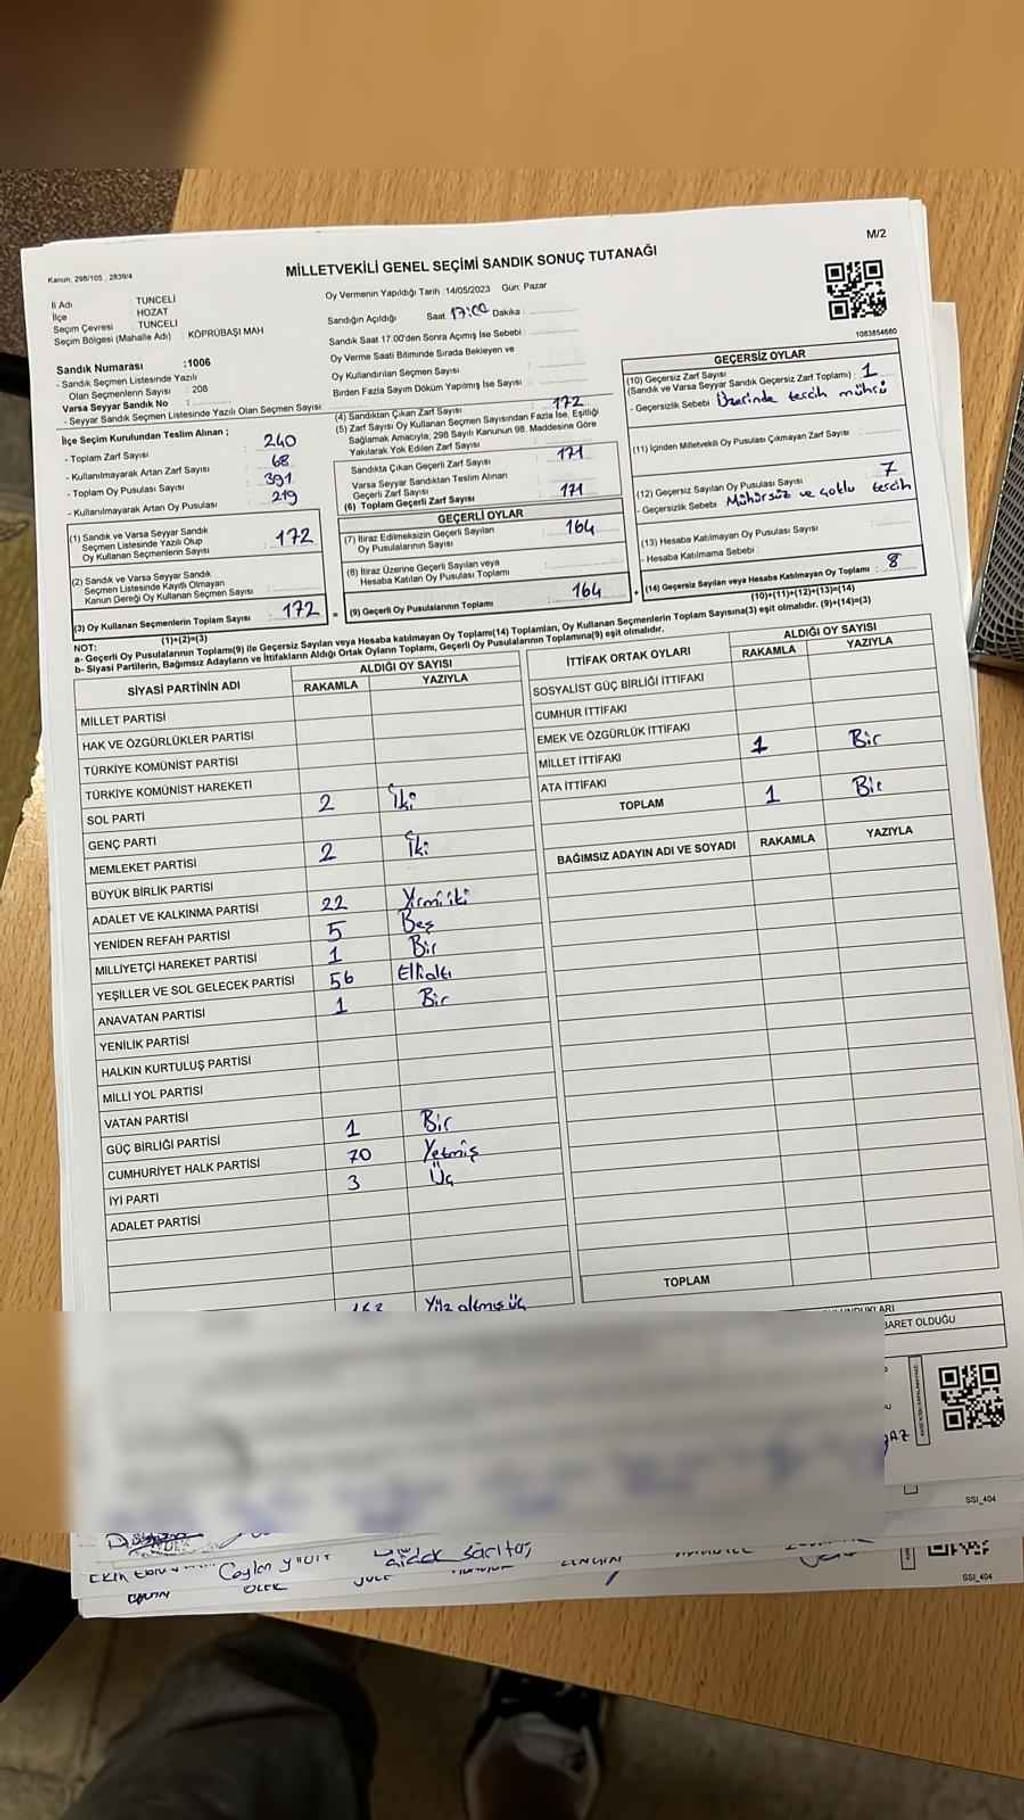 M/2
Kanun: 298/105 , 2839/4
MİLLETVEKİLİ GENEL SEÇİMİ SANDIK SONUÇ TUTANAĞI
1083854660
İl Adı : TUNCELİ
İlçe : HOZAT
Seçim Çevresi : TUNCELİ
Seçim Bölgesi (Mahalle Adı) : KÖPRÜBAŞI MAH
Sandık Numarası :1006
- Sandık Seçmen Listesinde Yazılı
Olan Seçmenlerin Sayısı : 208
Varsa Seyyar Sandık No :
- Seyyar Sandık Seçmen Listesinde Yazılı Olan Seçmen Sayısı
Oy Vermenin Yapıldığı Tarih :14/05/2023 Gün: Pazar
Sandığın Açıldığı Saat 17:00 Dakika :
Sandık Saat 17.00'den Sonra Açımış İse Sebebi :
Oy Verme Saati Bitiminde Sırada Bekleyen ve
Oy Kullandırılan Seçmen Sayısı :
Birden Fazla Sayım Döküm Yapılmış İse Sayısı :
İlçe Seçim Kurulundan Teslim Alınan ;
- Toplam Zarf Sayısı : 240
- Kullanılmayarak Artan Zarf Sayısı : 68
- Toplam Oy Pusulası Sayısı : 391
- Kullanılmayarak Artan Oy Pusulası : 219
(1) Sandık ve Varsa Seyyar Sandık
Seçmen Listesinde Yazılı Olup
Oy Kullanan Seçmenlerin Sayısı : 172
(2) Sandık ve Varsa Seyyar Sandık
Seçmen Listesinde Kayıtlı Olmayan
Kanun Gereği Oy Kullanan Seçmen Sayısı :
(3) Oy Kullanan Seçmenlerin Toplam Sayısı : 172
(1)+(2)=(3)
(4) Sandıktan Çıkan Zarf Sayısı : 172
(5) Zarf Sayısı Oy Kullanan Seçmen Sayısından Fazla İse, Eşitliği
Sağlamak Amacıyla, 298 Sayılı Kanunun 98. Maddesine Göre
Yakılarak Yok Edilen Zarf Sayısı
Sandıkta Çıkan Geçerli Zarf Sayısı : 171
Varsa Seyyar Sandıktan Teslim Alınan
Geçerli Zarf Sayısı
(6) Toplam Geçerli Zarf Sayısı : 171
GEÇERLİ OYLAR
(7) İtiraz Edilmeksizin Geçerli Sayılan
Oy Pusulalarının Sayısı : 164
(8) İtiraz Üzerine Geçerli Sayılan veya
Hesaba Katılan Oy Pusulası Toplamı
= (9) Geçerli Oy Pusulalarının Toplamı : 164
GEÇERSİZ OYLAR
(10) Geçersiz Zarf Sayısı
(Sandık ve Varsa Seyyar Sandık Geçersiz Zarf Toplamı) : 1
- Geçersizlik Sebebi Üzerinde tercih mührü
(11) İçinden Milletvekili Oy Pusulası Çıkmayan Zarf Sayısı :
(12) Geçersiz Sayılan Oy Pusulası Sayısı : 7
- Geçersizlik Sebebi Mühürsüz ve çoklu tercih
(13) Hesaba Katılmayan Oy Pusulası Sayısı :
- Hesaba Katılmama Sebebi :
+ (14) Geçersiz Sayılan veya Hesaba Katılmayan Oy Toplamı : 8
(10)+(11)+(12)+(13)=(14)
NOT:
a- Geçerli Oy Pusulalarının Toplam(9) ile Geçersiz Sayılan veya Hesaba katılmayan Oy Toplam(14) Toplamları, Oy Kullanan Seçmenlerin Toplam Sayısına(3) eşit olmalıdır. (9)+(14)=(3)
b- Siyasi Partilerin, Bağımsız Adayların ve İttifakların Aldığı Ortak Oyların Toplamı, Geçerli Oy Pusulalarının Toplamına(9) eşit olmalıdır.
SİYASİ PARTİNİN ADI ALDIĞI OY SAYISI
RAKAMLA YAZIYLA
MİLLET PARTİSİ
HAK VE ÖZGÜRLÜKLER PARTİSİ
TÜRKİYE KOMÜNİST PARTİSİ
TÜRKİYE KOMÜNİST HAREKETİ
SOL PARTİ 2 İki
GENÇ PARTİ
MEMLEKET PARTİSİ 2 İki
BÜYÜK BİRLİK PARTİSİ
ADALET VE KALKINMA PARTİSİ 22 Yirmiiki
YENİDEN REFAH PARTİSİ 5 Beş
MİLLİYETÇİ HAREKET PARTİSİ 1 Bir
YEŞİLLER VE SOL GELECEK PARTİSİ 56 Ellialtı
ANAVATAN PARTİSİ 1 Bir
YENİLİK PARTİSİ
HALKIN KURTULUŞ PARTİSİ
MİLLİ YOL PARTİSİ
VATAN PARTİSİ
GÜÇ BİRLİĞİ PARTİSİ 1 Bir
CUMHURİYET HALK PARTİSİ 70 Yetmiş
İYİ PARTİ 3 Üç
ADALET PARTİSİ
163 Yüz altmış üç
İTTİFAK ORTAK OYLARI ALDIĞI OY SAYISI
RAKAMLA YAZIYLA
SOSYALİST GÜÇ BİRLİĞİ İTTİFAKI
CUMHUR İTTİFAKI
EMEK VE ÖZGÜRLÜK İTTİFAKI
MİLLET İTTİFAKI 1 Bir
ATA İTTİFAKI
TOPLAM 1 Bir
BAĞIMSIZ ADAYIN ADI VE SOYADI RAKAMLA YAZIYLA
TOPLAM
BARET OLDUĞU
SSI_404
Ceylan
SSI_404